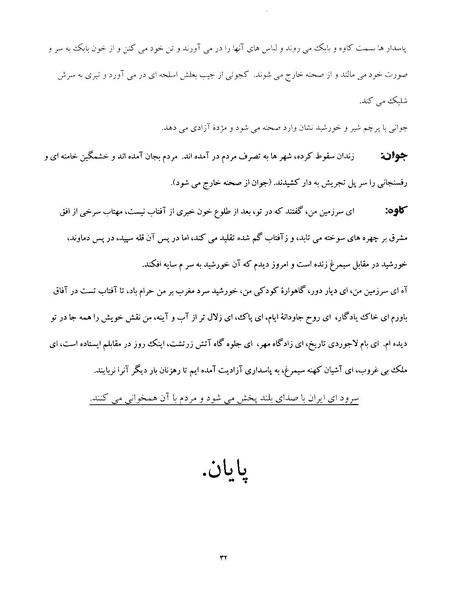 پاسدار ها بسمت کاوه و بابک می روند و لباس های آنها را در می آورند و تن خود می کنن و از خون بابک به سر و
صورت خود می مالند و از صحنه خارج می شوند. کچوئی از جیب بغلش اسلحه ای در می آورد و تیری به سرش
شلیک می کند.
جوانی با پرچم شیر و خورشید نشان وارد صحنه می شود و مژدهٔ آزادی می دهد.
جوان: زندان سقوط کرده، شهر ها به تصرف مردم در آمده اند. مردم بجان آمده اند و خشمگین خامنه ای و
رفسنجانی را سر پل تجریش به دار کشیدند. (جوان از صحنه خارج می شود).
کاوه: ای سرزمین من، گفتند که در تو، بعد از طلوع خون خبری از آفتاب نیست، مهتاب سرخی از افق
مشرق بر چهره های سوخته می تابد، و زآفتاب گم شده تقلید می کند، اما در پس آن قله سپید، در پس دماوند،
خورشید در مقابل سیمرغ زنده است و امروز دیدم که آن خورشید به سر م سایه افکند.
آه ای سرزمین من، ای دیار دور، گاهوارهٔ کودکی من، خورشید سرد مغرب بر من حرام باد، تا آفتاب تست در آفاق
باورم ای خاک یادگار، ای روح جاودانهٔ ایام، ای پاک، ای زلال تر از آب و آینه، من نقش خویش را همه جا در تو
دیده ام. ای بام لاجوردی تاریخ، ای زادگاه مهر، ای جلوه گاه آتش زرتشت، اینک روز در مقابلم ایستاده است، ای
ملک بی غروب، ای آشیان کهنه سیمرغ، به پاسداری آزادیت آمده ایم تا رهزنان بار دیگر آنرا نربایند.
سرود ای ایران با صدای بلند پخش می شود و مردم با آن همخوانی می کنند.
پایان.
۳۲